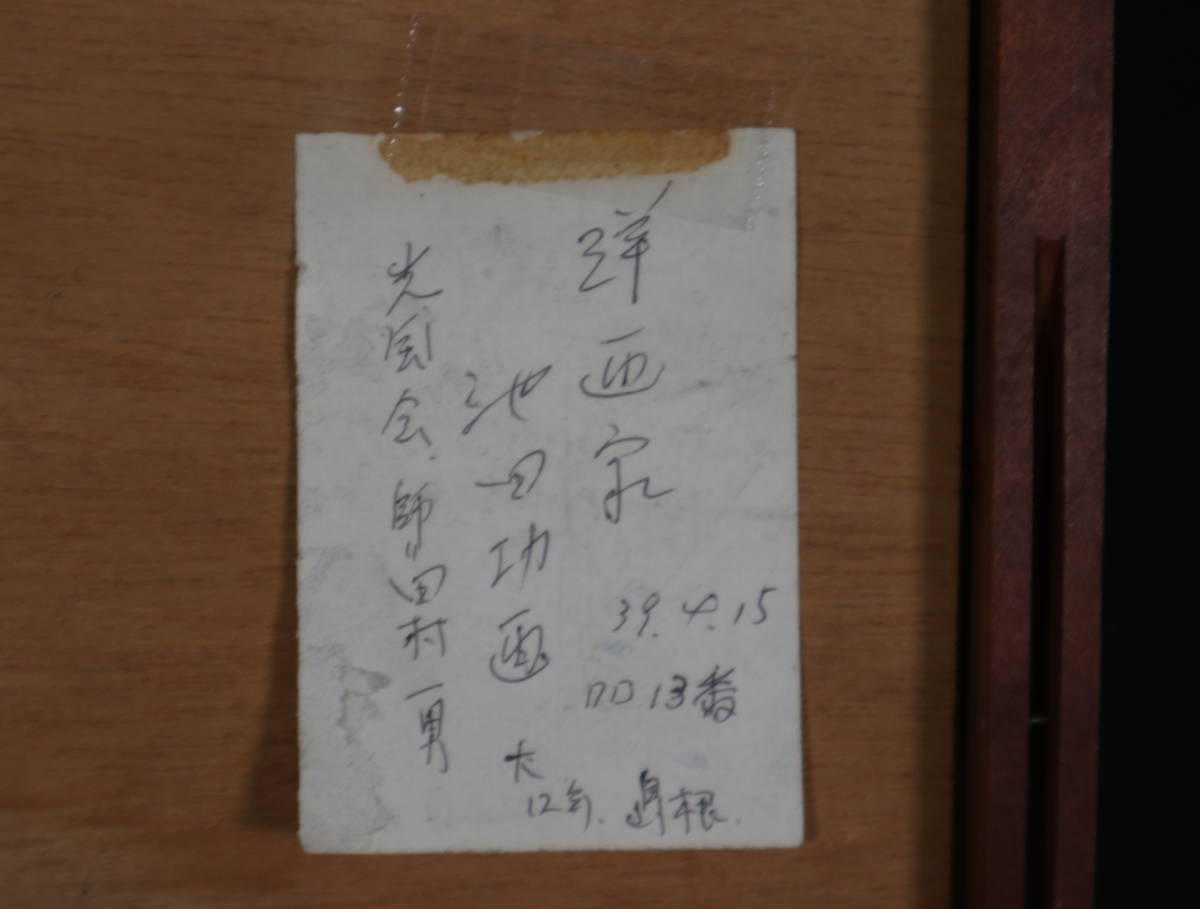 洋画家
39.4.15
13番
池田功画
大12年.島根.
光風会.師田村一男